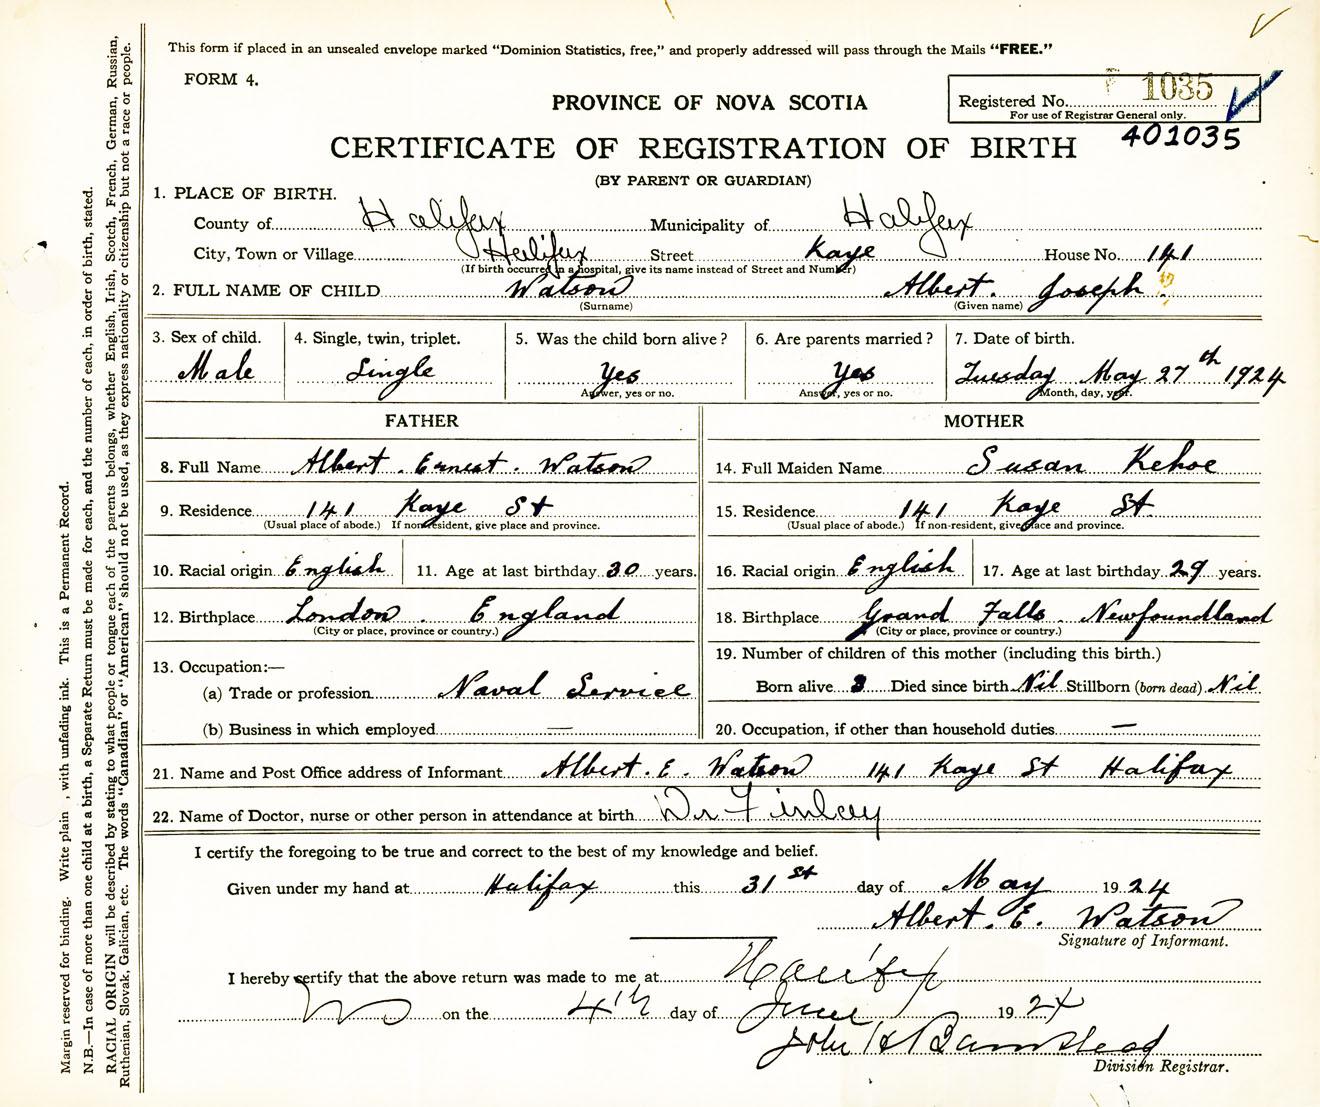 This form if placed in an unsealed envelope marked "Dominion Statistics, free," and properly addressed will pass through the Mails "FREE."
FORM 4.
Registered No. 1035
For use of Registrar General only.
401035
PROVINCE OF NOVA SCOTIA
CERTIFICATE OF REGISTRATION OF BIRTH
(BY PARENT OR GUARDIAN)
1. PLACE OF BIRTH.
County of Halifax Municipality of Halifax
City, Town or Village Halifax Street Kaye House No. 141
(If birth occurred in a hospital, give its name instead of Street and Number)
2. FULL NAME OF CHILD Watson Albert. Joseph.
(Surname) (Given name)
3. Sex of child. 4. Single, twin, triplet. 5. Was the child born alive? 6. Are parents married? 7. Date of birth.
Male Single Yes Yes Tuesday May 27th 1924
Answer, yes or no. Answer, yes or no. Month, day, year.
FATHER MOTHER
8. Full Name Albert. Ernest. Watson 14. Full Maiden Name Susan Kehoe
9. Residence 141 Kaye St 15. Residence 141 Kaye St.
(Usual place of abode.) If non-resident, give place and province. (Usual place of abode.) If non-resident, give place and province.
10. Racial origin English 11. Age at last birthday 30 years. 16. Racial origin English 17. Age at last birthday 29 years.
12. Birthplace London. England 18. Birthplace Grand Falls. Newfoundland
(City or place, province or country.) (City or place, province or country.)
13. Occupation:— 19. Number of children of this mother (including this birth.)
(a) Trade or profession Naval Service Born alive 3 Died since birth Nil Stillborn (born dead) Nil
(b) Business in which employed — 20. Occupation, if other than household duties —
21. Name and Post Office address of Informant Albert. E. Watson 141 Kaye St Halifax
22. Name of Doctor, nurse or other person in attendance at birth Dr Finlay
I certify the foregoing to be true and correct to the best of my knowledge and belief.
Given under my hand at Halifax this 31st day of May 1924
Albert. E. Watson
Signature of Informant.
I hereby certify that the above return was made to me at Halifax
on the 4th day of June 1924
John H Barnstead
Division Registrar.
Margin reserved for binding. Write plain, with unfading ink. This is a Permanent Record.
N.B.—In case of more than one child at a birth, a Separate Return must be made for each, and the number of each, in order of birth, stated.
RACIAL ORIGIN will be described by stating to what people or tongue each of the parents belongs, whether English, Irish, Scotch, French, German, Russian,
Ruthenian, Slovak, Galician, etc. The words "Canadian" or "American" should not be used, as they express nationality or citizenship but not a race or people.